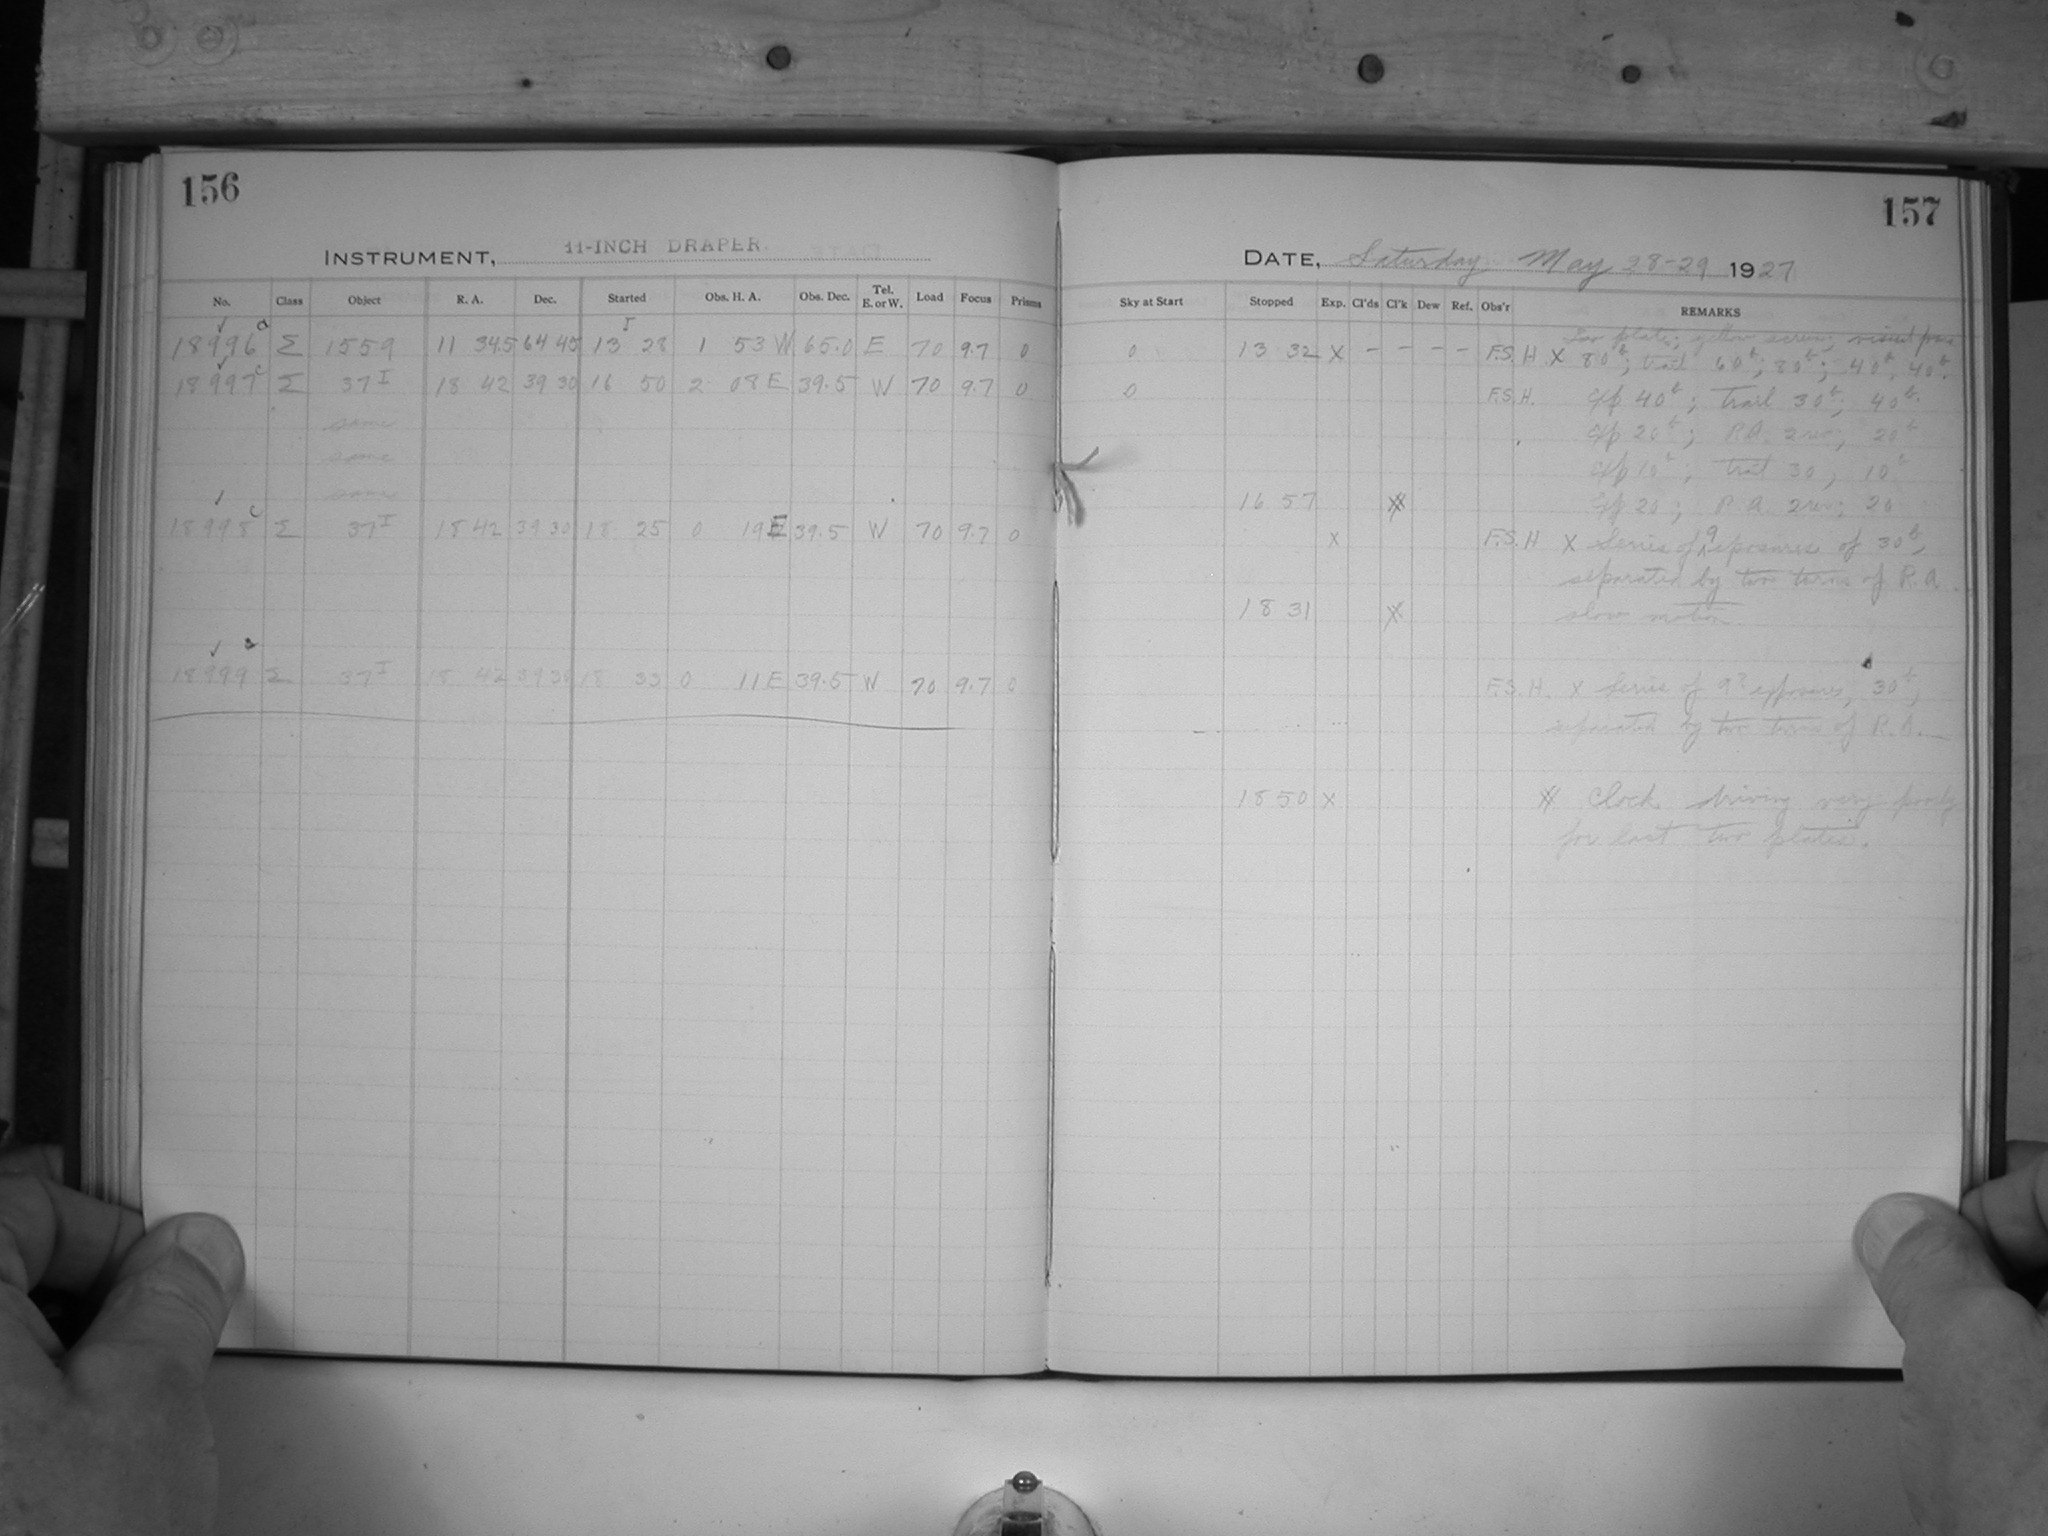 156
INSTRUMENT, 11-INCH DRAPER
No. Class Object R. A. Dec. Started Obs. H. A. Obs. Dec. Tel. E. or W. Load Focus Prisms
18996 a Σ 1559 11 34.5 64 45 13 28 1 53 W 65.0 E 70 9.7 0
18997 c Σ 37 I 18 42 39 30 16 50 2 08 E 39.5 W 70 9.7 0
same
same
same
18998 c Σ 37 I 18 42 39 30 18 25 0 19 E 39.5 W 70 9.7 0
18999 Σ 37 I 18 42 39 30 18 33 0 11 E 39.5 W 70 9.7 0
157
DATE, Saturday May 28-29 1927
Sky at Start Stopped Exp. Cl'ds Cl'k Dew Ref. Obs'r REMARKS
plate; yellow screen; visual
0 13 32 X - - - - F.S.H X 80t; trail 60t; 80t; 40t, 40t.
0 F.S.H. Exp 40t; trail 30t; 40t.
Exp 20t; R.A. 2 rev; 20t
Exp 10t; trail 30, 10t
16 57 X Exp 20; R.A. 2 rev; 20
X F.S.H X Series of 9 exposures of 30t,
separated by two turns of R.A.
18 31 X slow motion.
F.S.H. X Series of 9? exposures, 30t,
separated by two turns of R.A.
18 50 X X Clock driving very poorly
for last two plates.